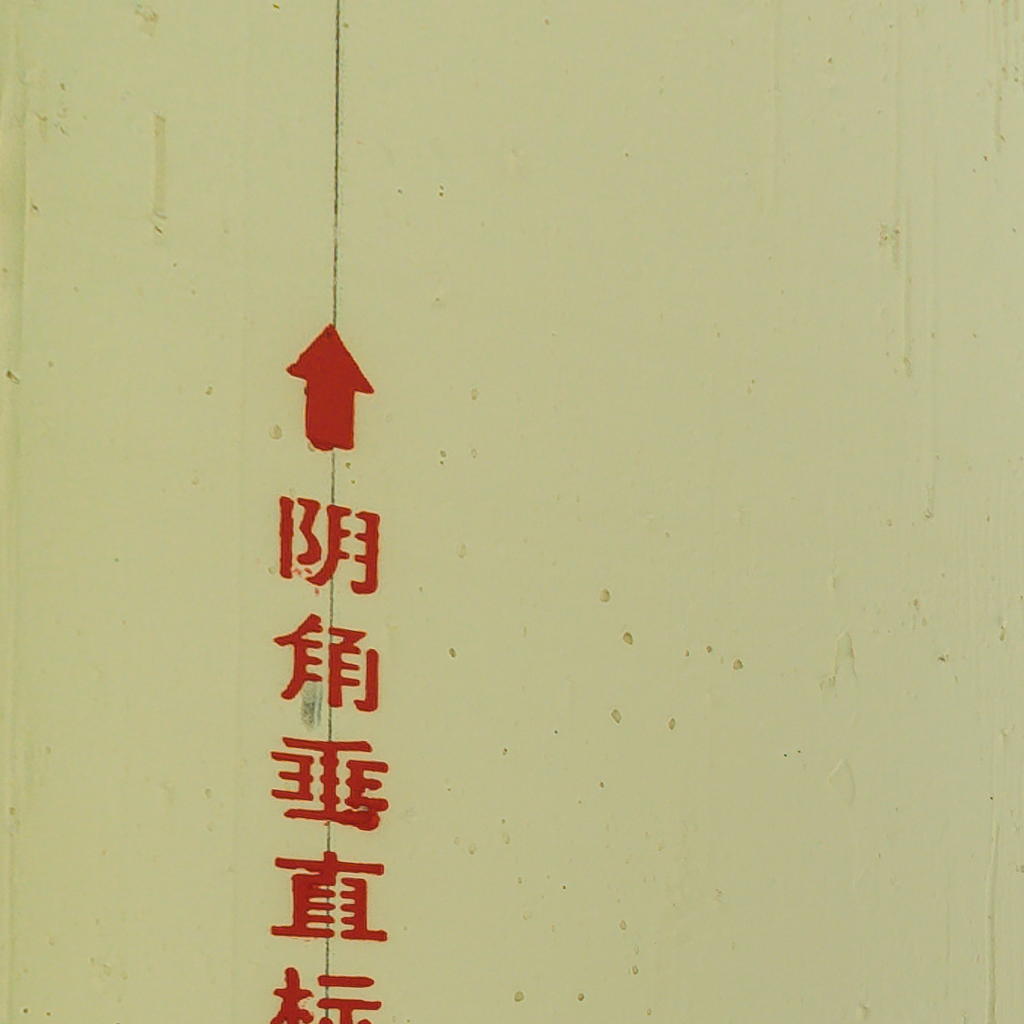 阴角垂直标